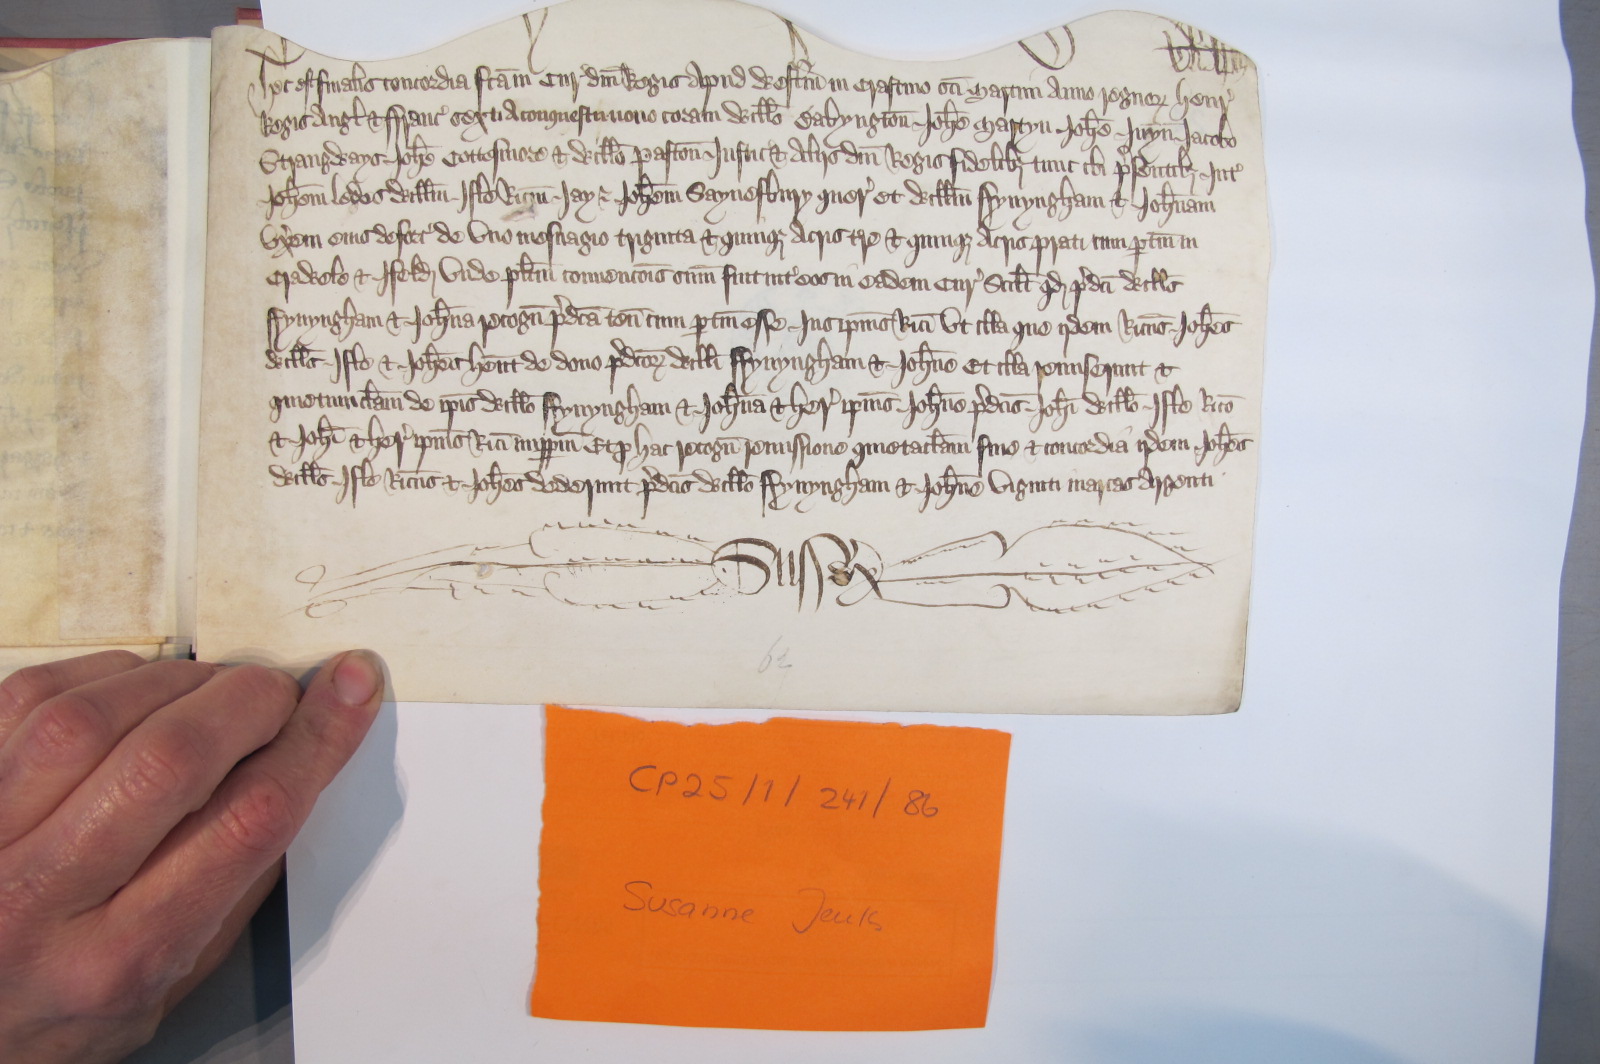 Hec est finalis concordia fc̄a in Cur̉ dn̄i Regis Apud Westm̄ in Crastino sc̄i Martini Anno regnor̉ Henr̉
Regis Angl̉ & ffranc̉ sexti A conquestu nono coram Will̄o Babyngton̄ Joh̄e Martyn Joh̄e Juyn Jacobo
Strangways Joh̄e Cottesmore & Will̄o Paston̄ Justic̉ & Alijs dn̄i Regis fidelibȝ tunc ibi p̉sentibȝ Int̉
Joh̄em Will̄m Isle Ric̄m Jay & Joh̄em Saynesbury quer̉ et Will̄m ffynyngham & Joh̄nam
Vx̄em eius deforc̉ de Vno mesuagio triginta & quinqȝ Acris t̄re & quinqȝ Acris prati cum ptin̄ in
& Ifeld Vnde pl̄itm conuencōis sum̄ fuit int̉ eos in eadem Cur̉ Scil̄t qd̄ p̉dc̄i Will̄s
ffynyngham & Joh̄na recogn̄ p̉dc̄a ten̄ cum ptin̄ esse Jus ipius Ric̄i Vt illa que ijdem Ric̄us Joh̄es
Will̄s Isle & Joh̄es hent de dono p̉dc̄or̉ Will̄i ffynyngham & Joh̄ne Et illa remiserunt &
quietumclam̄ de ip̄is Will̄o ffynyngham & Joh̄na & her̉ ipius Joh̄ne p̉dc̄is Joh̄i Will̄o Isle Ric̄o
& Joh̄i & her̉ ipius Ric̄i imppm̄ Et p hac recogn̄ remissione quietaclam̄ fine & concordia ijdem Joh̄es
Will̄s Isle Ric̄us & Joh̄es dederunt p̉dc̄is Will̄o ffynyngham & Joh̄ne Viginti marcas Argenti
Sussex
62
CP25/1/241/86
Susanne Jenks